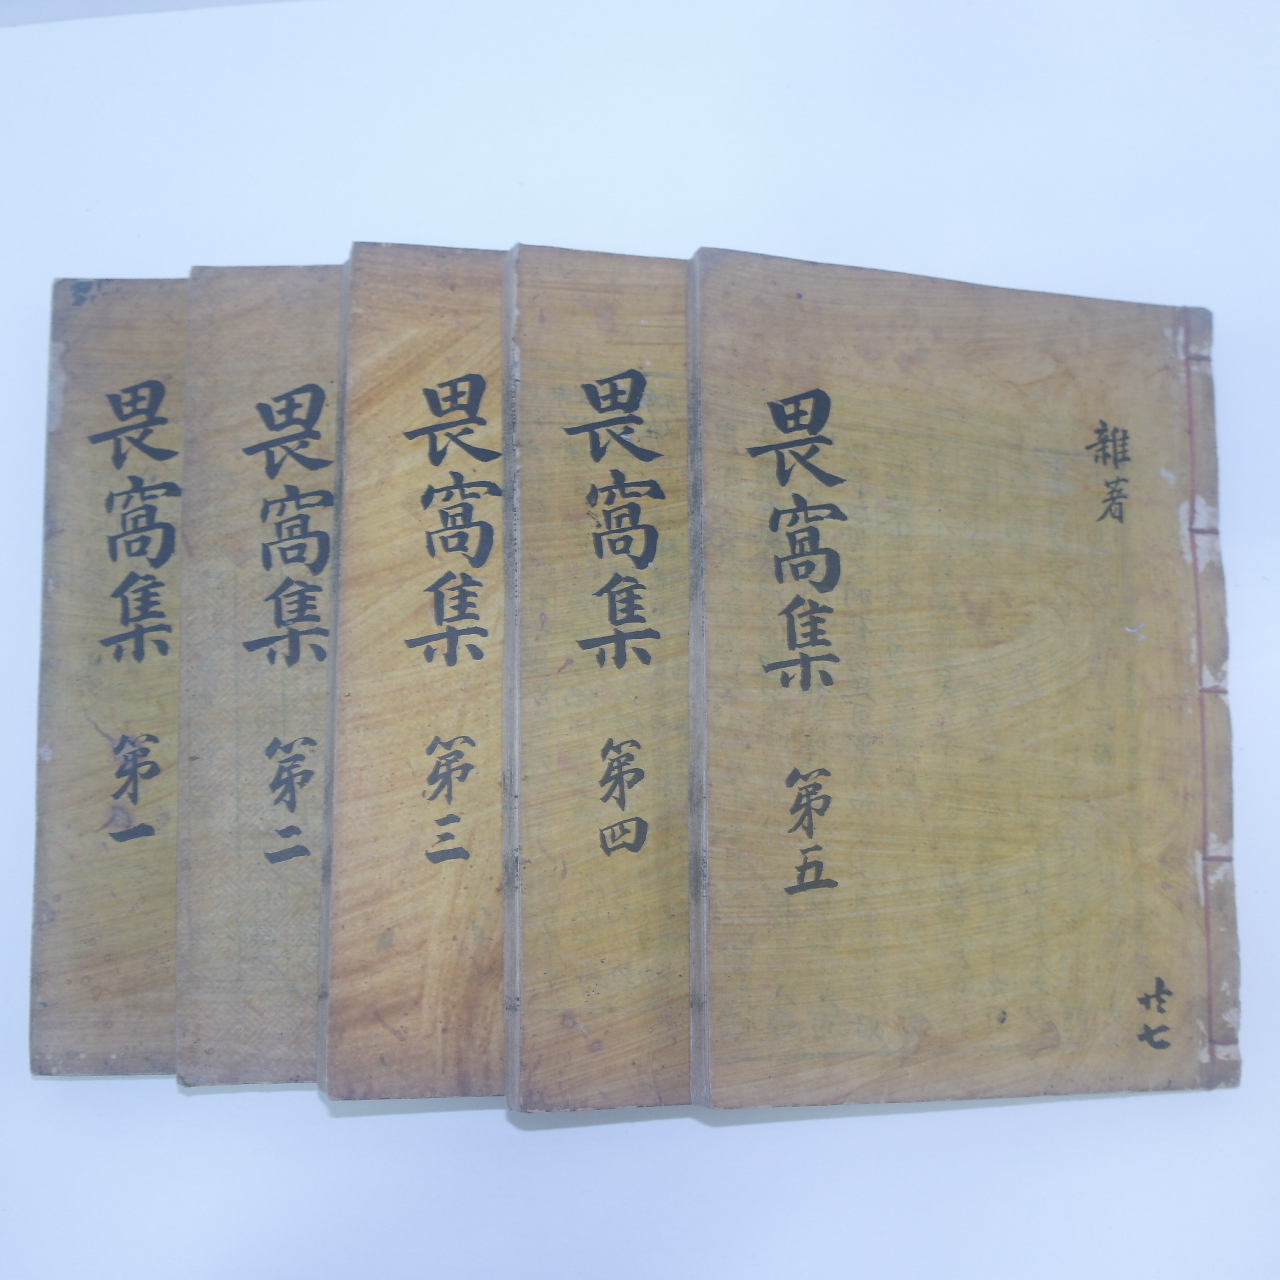 畏窩集 第一
畏窩集 第二
畏窩集 第三
畏窩集 第四
畏窩集 第五
雜著
共七